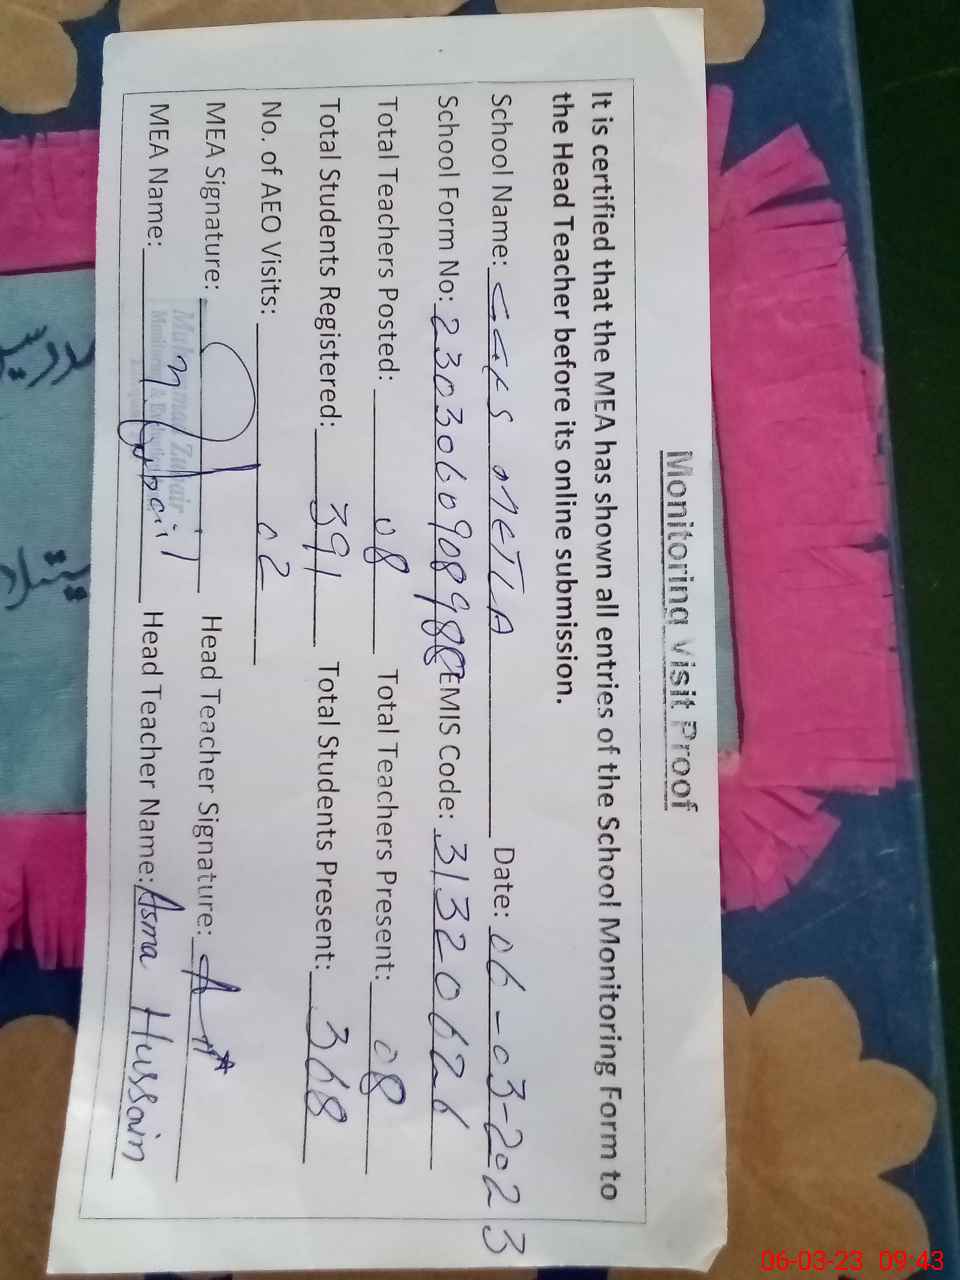 Monitoring Visit Proof
It is certified that the MEA has shown all entries of the School Monitoring Form to
the Head Teacher before its online submission.
School Name: METLA Date: 06-03-2023
School Form No: EMIS Code: 31320626
Total Teachers Posted: 08 Total Teachers Present: 08
Total Students Registered: 391 Total Students Present: 368
No. of AEO Visits: 02
MEA Signature: Head Teacher Signature:
MEA Name: M Zubair Head Teacher Name: Asma Hussain
Muhammad Zubair
06-03-23 09:43